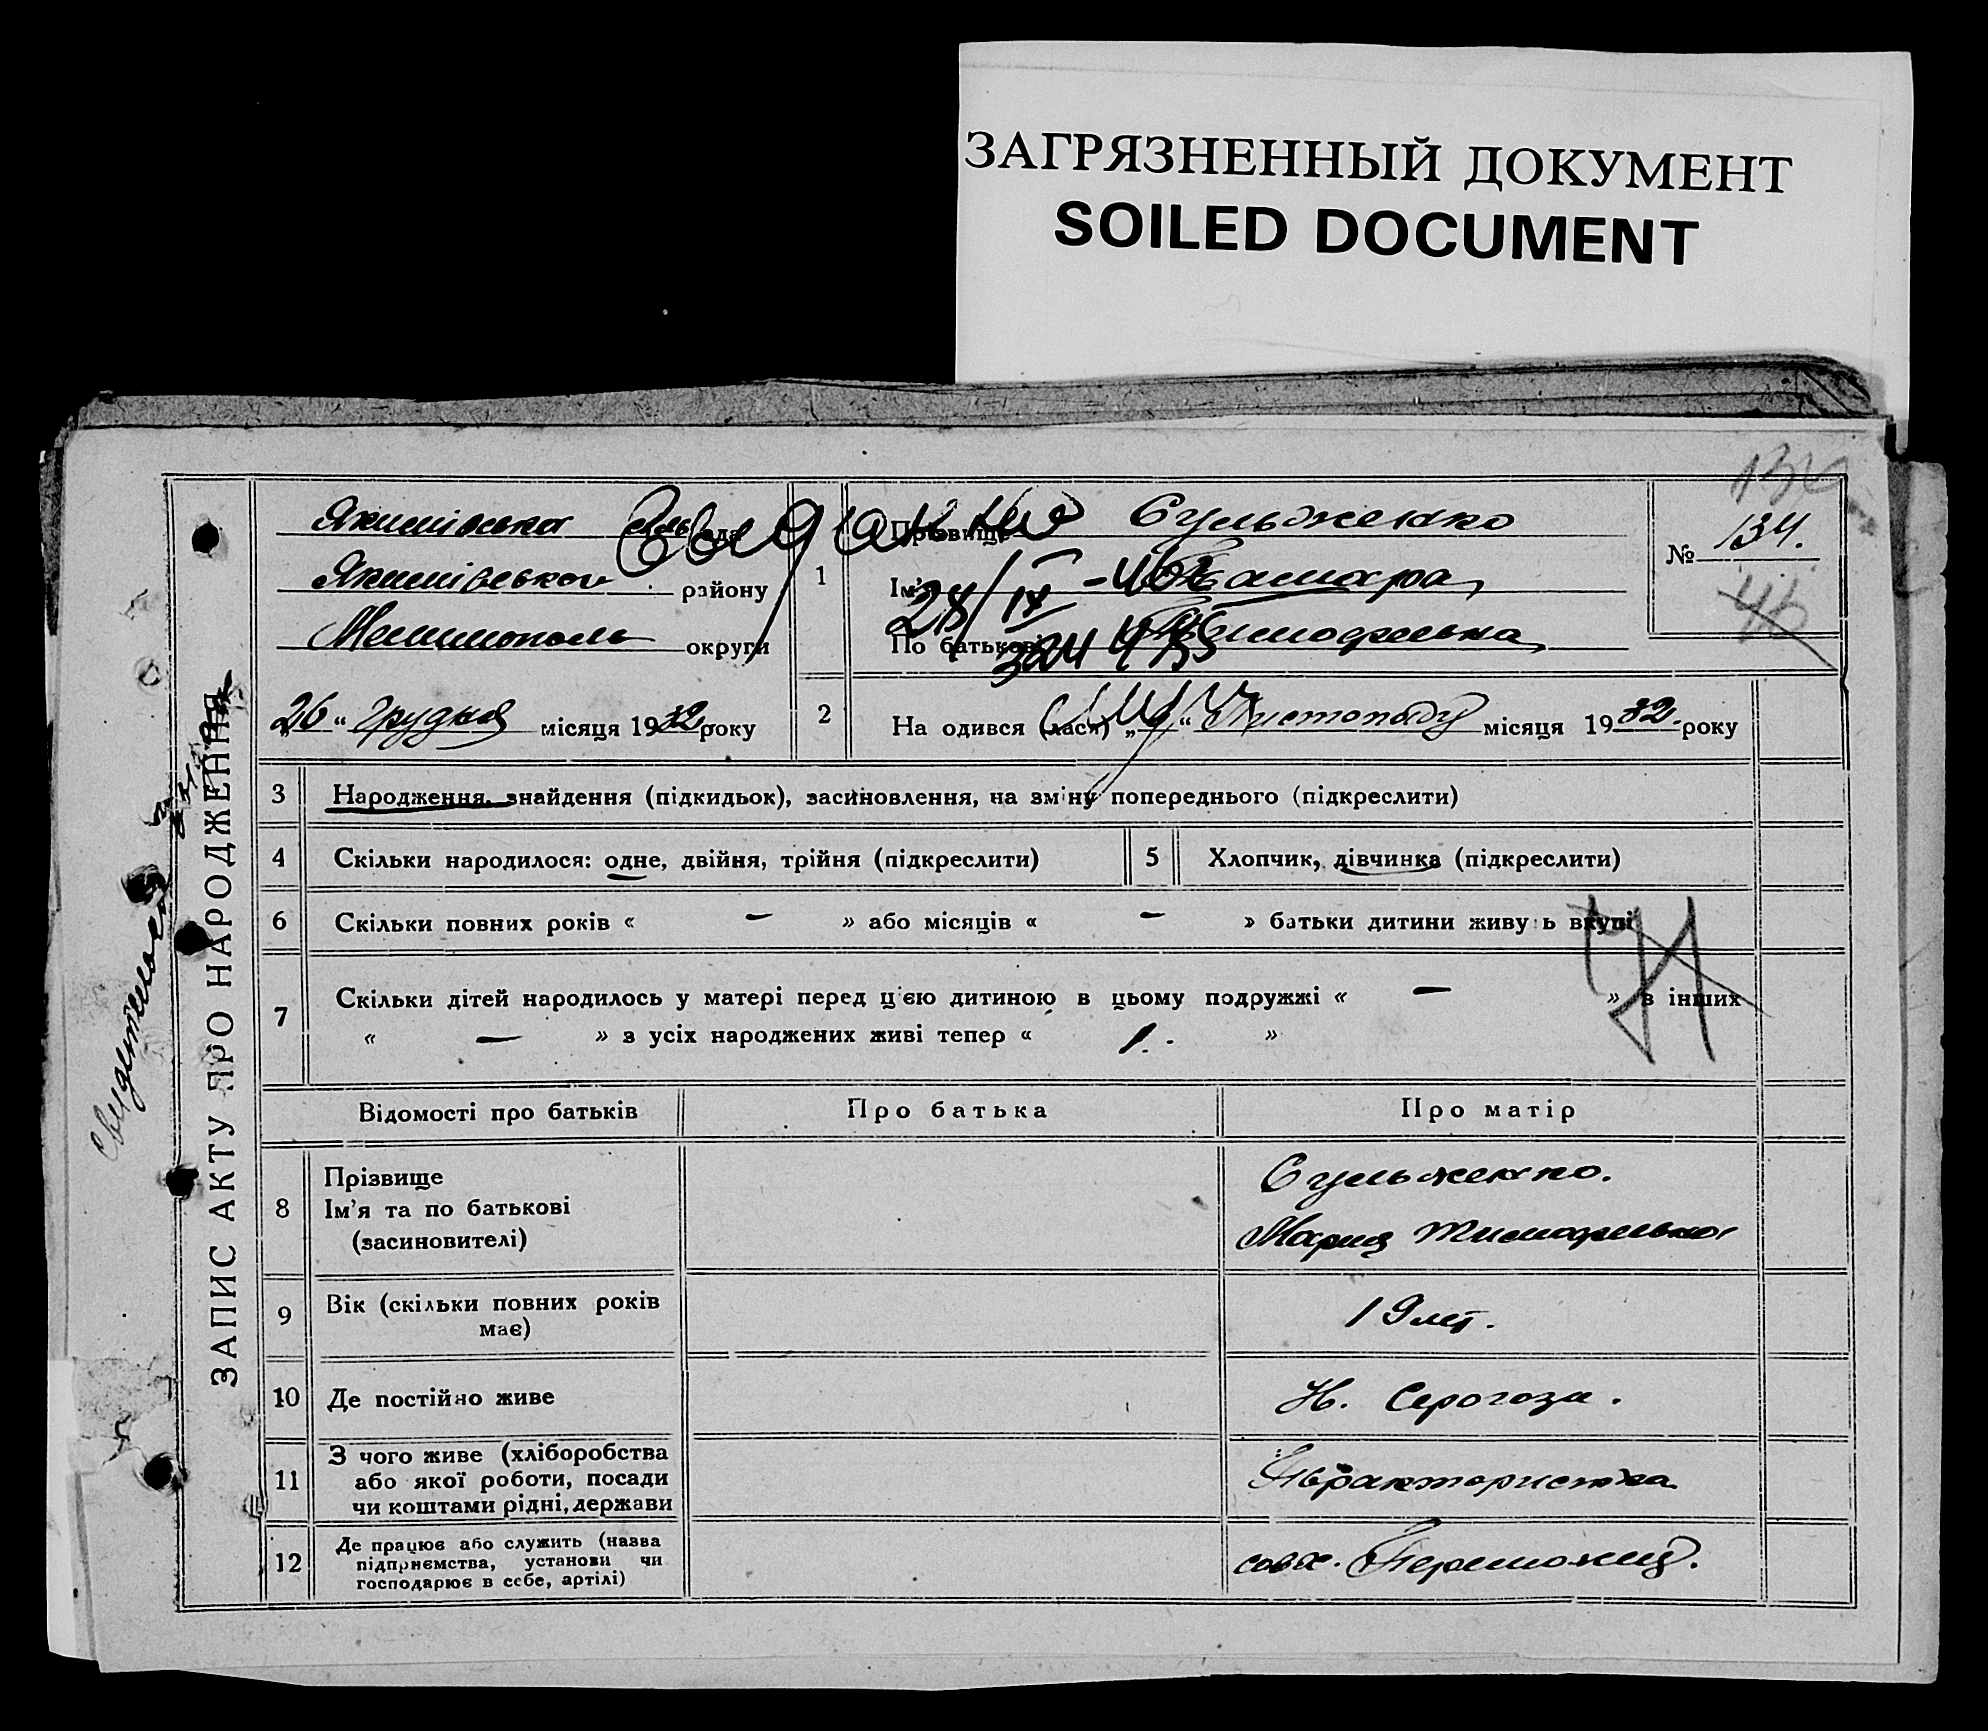 ЗАГРЯЗНЕННЫЙ ДОКУМЕНТ
SOILED DOCUMENT
ЗАПИС АКТУ ПРО НАРОДЖЕННЯ
Якимівська
Якимівського району
Мелитополь округи
„26“ Грудня місяця 1932 року
№ 134.
1
Прізвище Сульженко
Ім'я Тамара
По батькові Тимофеевна
28/IX
2
На одився (лася) „ “ Листопаду місяця 1932 року
3 Народження, знайдення (підкидьок), засиновлення, на зміну попереднього (підкреслити)
4 Скільки народилося: одне, двійня, трійня (підкреслити)
5 Хлопчик, дівчинка (підкреслити)
6 Скільки повних років « – » або місяців « – » батьки дитини живу ь вкупі
7 Скільки дітей народилось у матері перед цією дитиною в цьому подружжі « – » в інших
« – » з усіх народжених живі тепер « 1. »
Відомості про батьків Про батька Про матір
8 Прізвище
Ім'я та по батькові
(засиновителі)
Сульженко.
Мария Тимофеевна
9 Вік (скільки повних років
має)
19 лет.
10 Де постійно живе
Н. Серогози.
11 З чого живе (хліборобства
або якої роботи, посади
чи коштами рідні, держави
12 Де працює або служить (назва
підприємства, установи чи
господарює в себе, артілі)
совх.